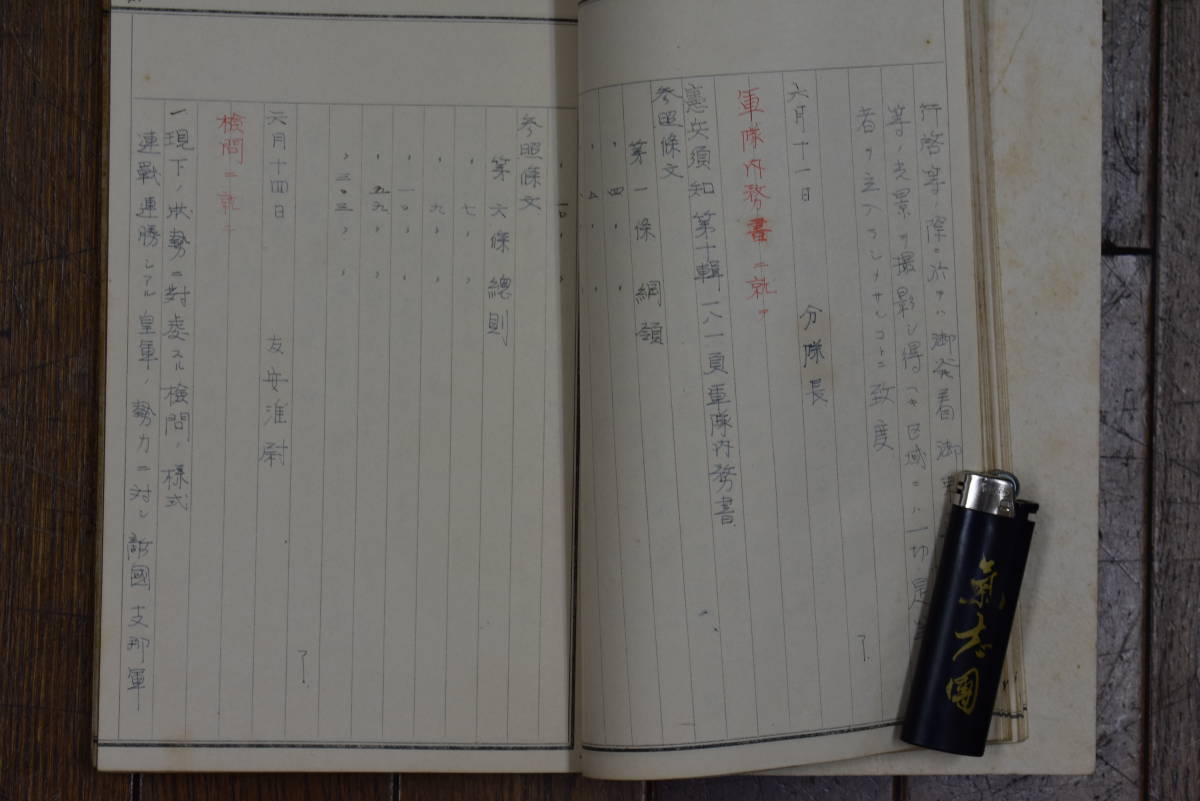 行啓等ノ際ニ於テハ御発着御
等ノ光景ヲ撮影シ得ヘキ区域ニハ一切是等
者ヲ立入ラシメサルコトニ致度
了
六月十一日 分隊長
軍隊内務書ニ就テ
憲兵須知第十輯一八一頁軍隊内務書
参照條文
第一條綱領
〃四〃〃
参照條文
第六條總則
〃七〃〃
〃九〃〃
〃一〇〃〃
〃五九〃〃
〃三〇三〃〃
了
六月十四日 友安准尉
檢問ニ就テ
一現下ノ状勢ニ対処スル檢問ノ様式
連戰連勝シアル皇軍ノ勢力ニ対シ敵國支那軍
氣志團